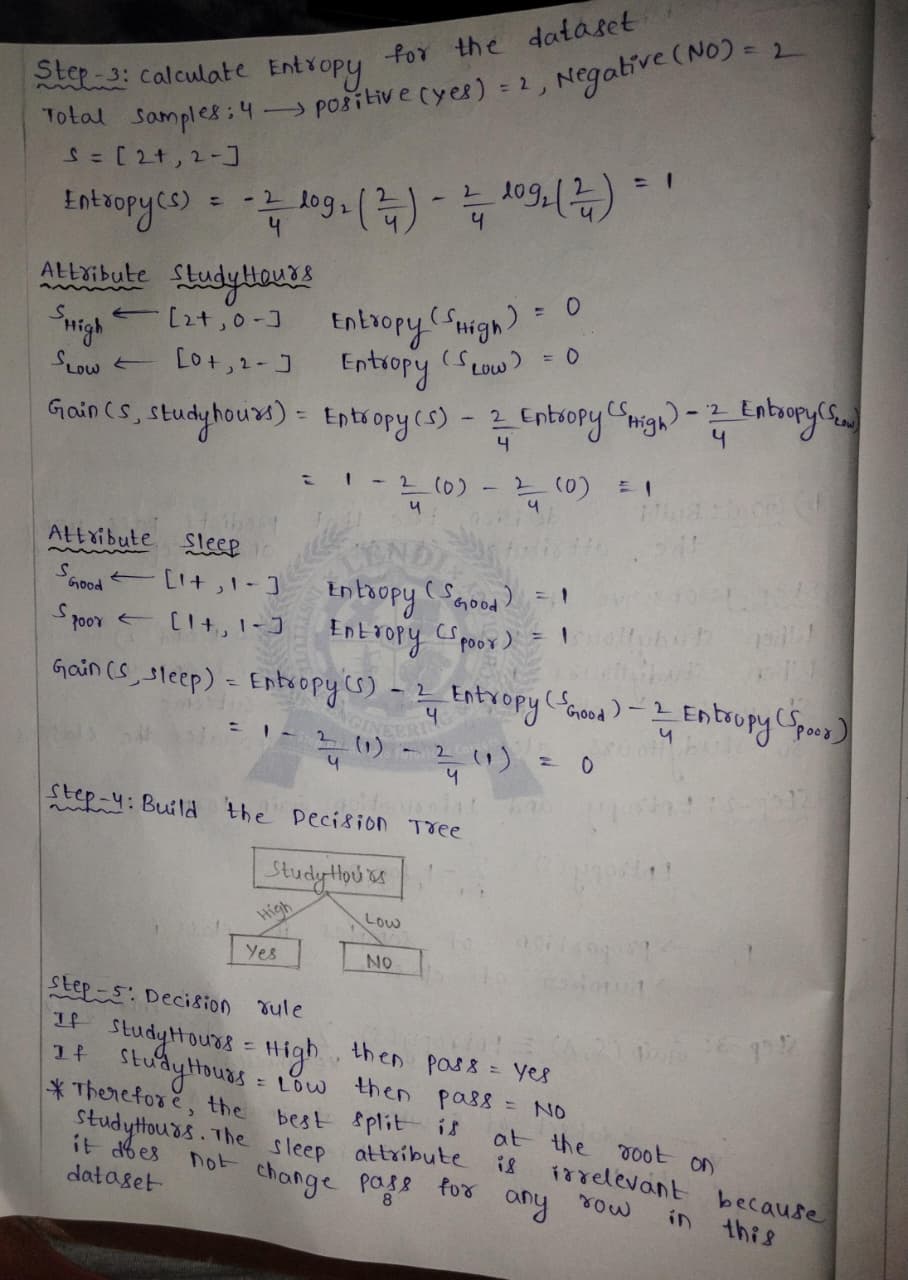 Step-3: Calculate Entropy for the dataset
Total samples: 4 → positive (yes) = 2, Negative (NO) = 2
S = [2+, 2-]
Entropy(S) = -2/4 log₂(2/4) - 2/4 log₂(2/4) = 1
Attribute StudyHours
S_High ← [2+, 0-] Entropy(S_High) = 0
S_Low ← [0+, 2-] Entropy (S_Low) = 0
Gain(S, studyhours) = Entropy(S) - 2/4 Entropy(S_High) - 2/4 Entropy(S_Low)
= 1 - 2/4 (0) - 2/4 (0) = 1
Attribute Sleep
S_Good ← [1+, 1-] Entropy (S_Good) = 1
S_poor ← [1+, 1-] Entropy (S_poor) = 1
Gain(S, sleep) = Entropy(S) - 2/4 Entropy(S_Good) - 2/4 Entropy(S_poor)
= 1 - 2/4 (1) - 2/4 (1) = 0
Step-4: Build the Decision Tree
StudyHours
High Low
Yes NO
Step-5: Decision rule
If StudyHours = High, then pass = Yes
If StudyHours = Low then pass = NO
* Therefore, the best split is at the root on
StudyHours. The sleep attribute is irrelevant because
it does not change pass for any row in this
dataset
8
LENDI
ENGINEERING